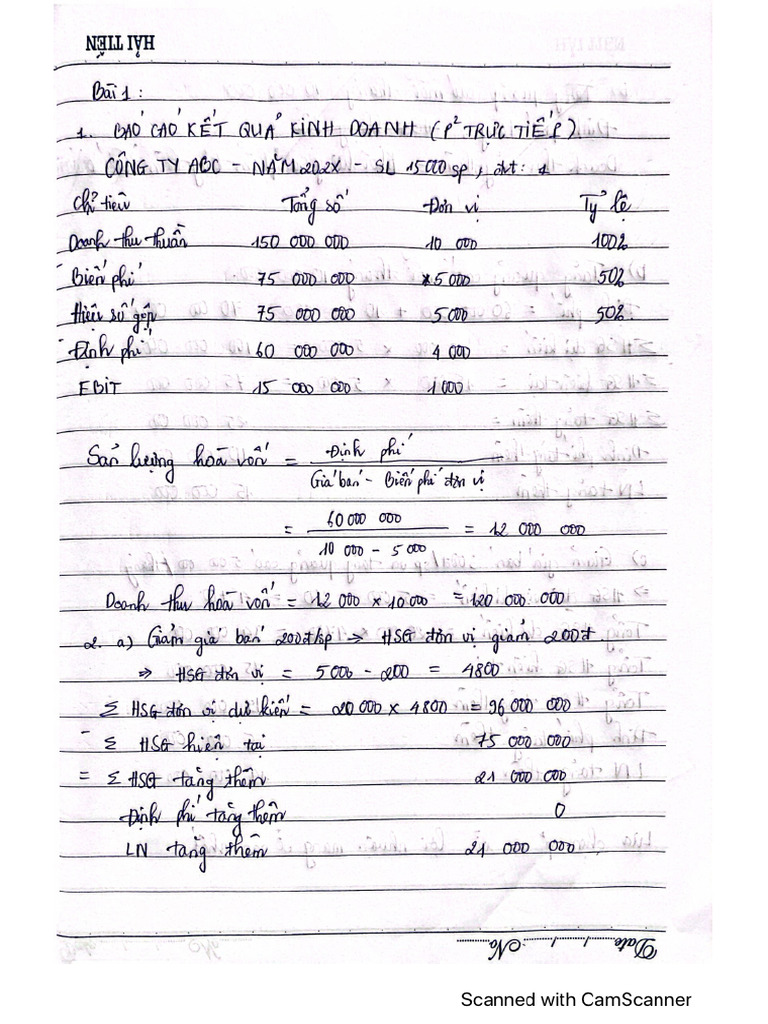 HẢI TIẾN
Bài 1:
1. BÁO CÁO KẾT QUẢ KINH DOANH (P² TRỰC TIẾP)
CÔNG TY ABC - NĂM 202X - SL 15000 sp, đvt: đ
Chỉ tiêu Tổng số Đơn vị Tỷ lệ
Doanh thu thuần 150 000 000 10 000 100%
Biến phí 75 000 000 5000 50%
Hiệu số gộp 75 000 000 5000 50%
Định phí 60 000 000 4 000
EBIT 15 000 000 1 000
Sản lượng hoà vốn = Định phí / Giá bán - Biến phí đơn vị
= 60 000 000 / 10 000 - 5 000 = 12 000 000
Doanh thu hoà vốn = 12 000 x 10 000 = 120 000 000
2. a) Giảm giá bán 200đ/sp => HSG đơn vị giảm 200đ
=> HSG đơn vị = 5000 - 200 = 4800
Σ HSG đơn vị dự kiến = 20 000 x 4800 = 96 000 000
- Σ HSG hiện tại 75 000 000
= Σ HSG tăng thêm 21 000 000
Định phí tăng thêm 0
LN tăng thêm 21 000 000
Date ...../...../..... No.
Scanned with CamScanner